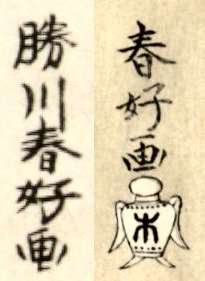 勝川春好画
春好画
木